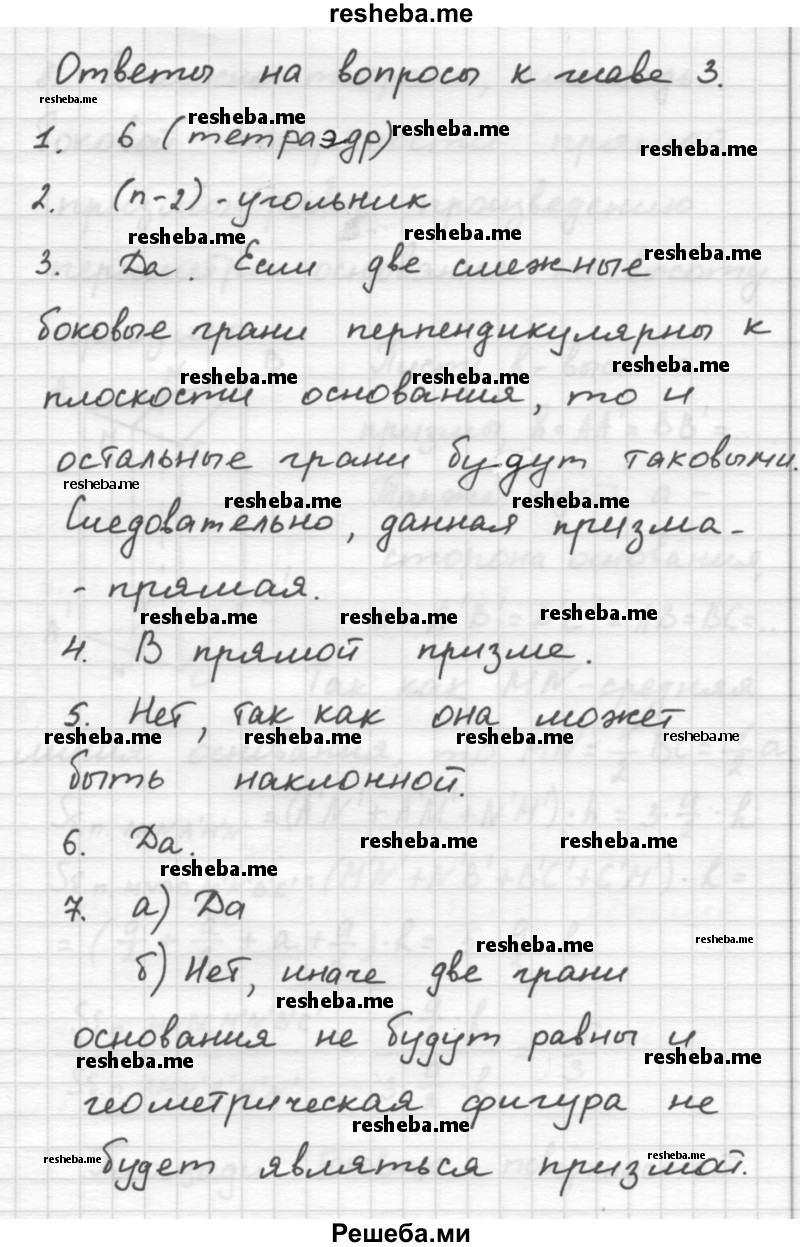 resheba.me
Ответы на вопросы к главе 3.
resheba.me
resheba.me
resheba.me
1. 6 (тетраэдр)
resheba.me
2. (n-2) - угольник
resheba.me
resheba.me
resheba.me
3. Да. Если две смежные
боковые грани перпендикулярны к
resheba.me
resheba.me
resheba.me
плоскости основания, то и
остальные грани будут таковыми.
resheba.me
resheba.me
resheba.me
Следовательно, данная призма -
- прямая.
resheba.me
resheba.me
resheba.me
4. В прямой призме.
5. Нет, так как она может
resheba.me
resheba.me
resheba.me
resheba.me
быть наклонной.
6. Да.
resheba.me
resheba.me
resheba.me
7. а) Да
resheba.me
resheba.me
б) Нет, иначе две грани
resheba.me
основания не будут равны и
resheba.me
resheba.me
геометрическая фигура не
resheba.me
resheba.me
resheba.me
будет являться призмой.
Решеба.ми